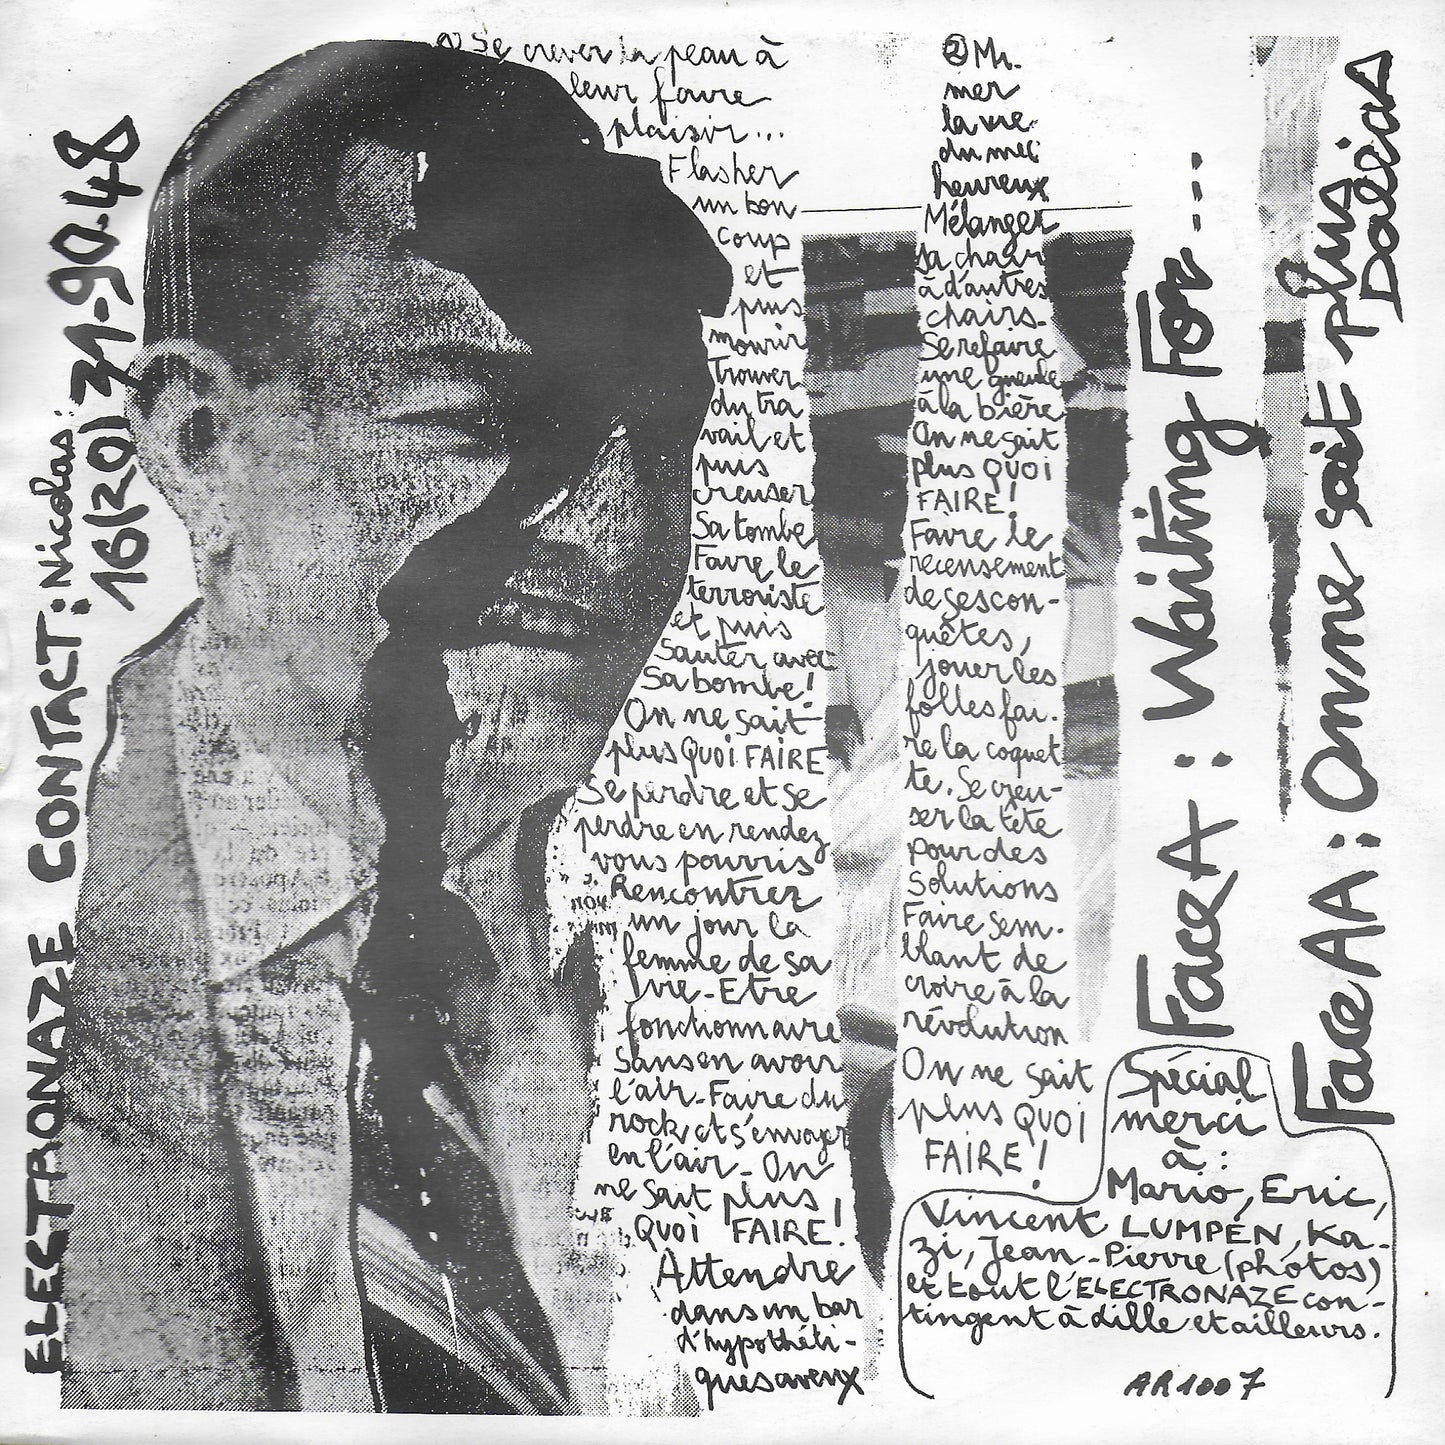 ELECTRONAZE CONTACT: Nicolas:
16(20) 31-90-48
① Se crever la peau à
leur faire
plaisir...
Flasher
un bon
coup
et
puis
mourir
Trouver
du tra
vail et
puis
creuser
Sa tombe
Faire le
terroriste
et puis
Sauter avec
Sa bombe!
On ne sait
plus QUOI FAIRE
Se perdre et se
perdre en rendez
vous pourris
Rencontrer
un jour la
femme de sa
vie - Etre
fonctionnaire
Sans en avoir
l'air - Faire du
rock et s'envoyer
en l'air - On
ne sait plus
QUOI FAIRE!
Attendre
dans un bar
d'hypothéti-
ques aveux
② Mi.
mer
la vie
du mec
heureux
Mélanger
sa chair
à d'autres
chairs -
Se refaire
une gueule
à la bière
On ne sait
plus QUOI
FAIRE!
Faire le
recensement
de ses con-
quêtes,
jouer les
folles fai.
re la coquet
te. Se creu-
ser la tête
pour des
Solutions
Faire sem.
blant de
croire à la
révolution
On ne sait
plus QUOI
FAIRE!
Face A : Waiting For ...
Face AA : On ne sait plus
Spécial
merci
à :
Mario, Eric,
Vincent LUMPEN, Ka-
zi, Jean-Pierre (photos)
et tout l'ELECTRONAZE con-
tingent à dille et ailleurs.
AR1007